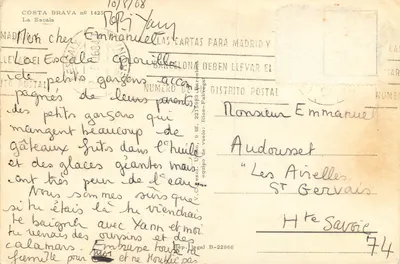 COSTA BRAVA nº 1425
La Escala
10/8/68
Mon cher Emmanuel
La Escala grouille
de petits garçons accom
pagnés de leurs parents,
des petits garçons qui
mangent beaucoup de
gâteaux frits dans l'huile
et des glaces géantes mais
ont très peur de l'eau.
Nous sommes sûrs que
si tu étais là tu viendrais
te baigner avec Yann et moi
tu des oursins et des
calamars. Embrasse toute ta
famille pour et ne
LAS CARTAS PARA MADRID Y
BARCELONA DEBEN LLEVAR EL
NUMERO DISTRITO POSTAL
Monsieur Emmanuel
Audousset
"Les Airelles"
St Gervais
Hte Savoie
74
Legal B-22966